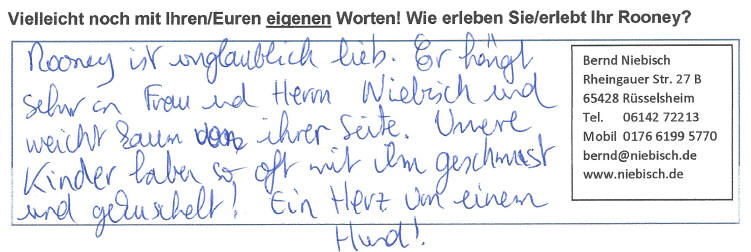 Vielleicht noch mit Ihren/Euren eigenen Worten! Wie erleben Sie/erlebt Ihr Rooney?
Rooney ist unglaublich lieb. Er hängt
sehr an Frau und Herrn Niebisch und
weicht kaum von ihrer Seite. Unsere
Kinder haben so oft mit ihm geschmust
und gekuschelt! Ein Herz von einem
Hund!
Bernd Niebisch
Rheingauer Str. 27 B
65428 Rüsselsheim
Tel. 06142 72213
Mobil 0176 6199 5770
bernd@niebisch.de
www.niebisch.de